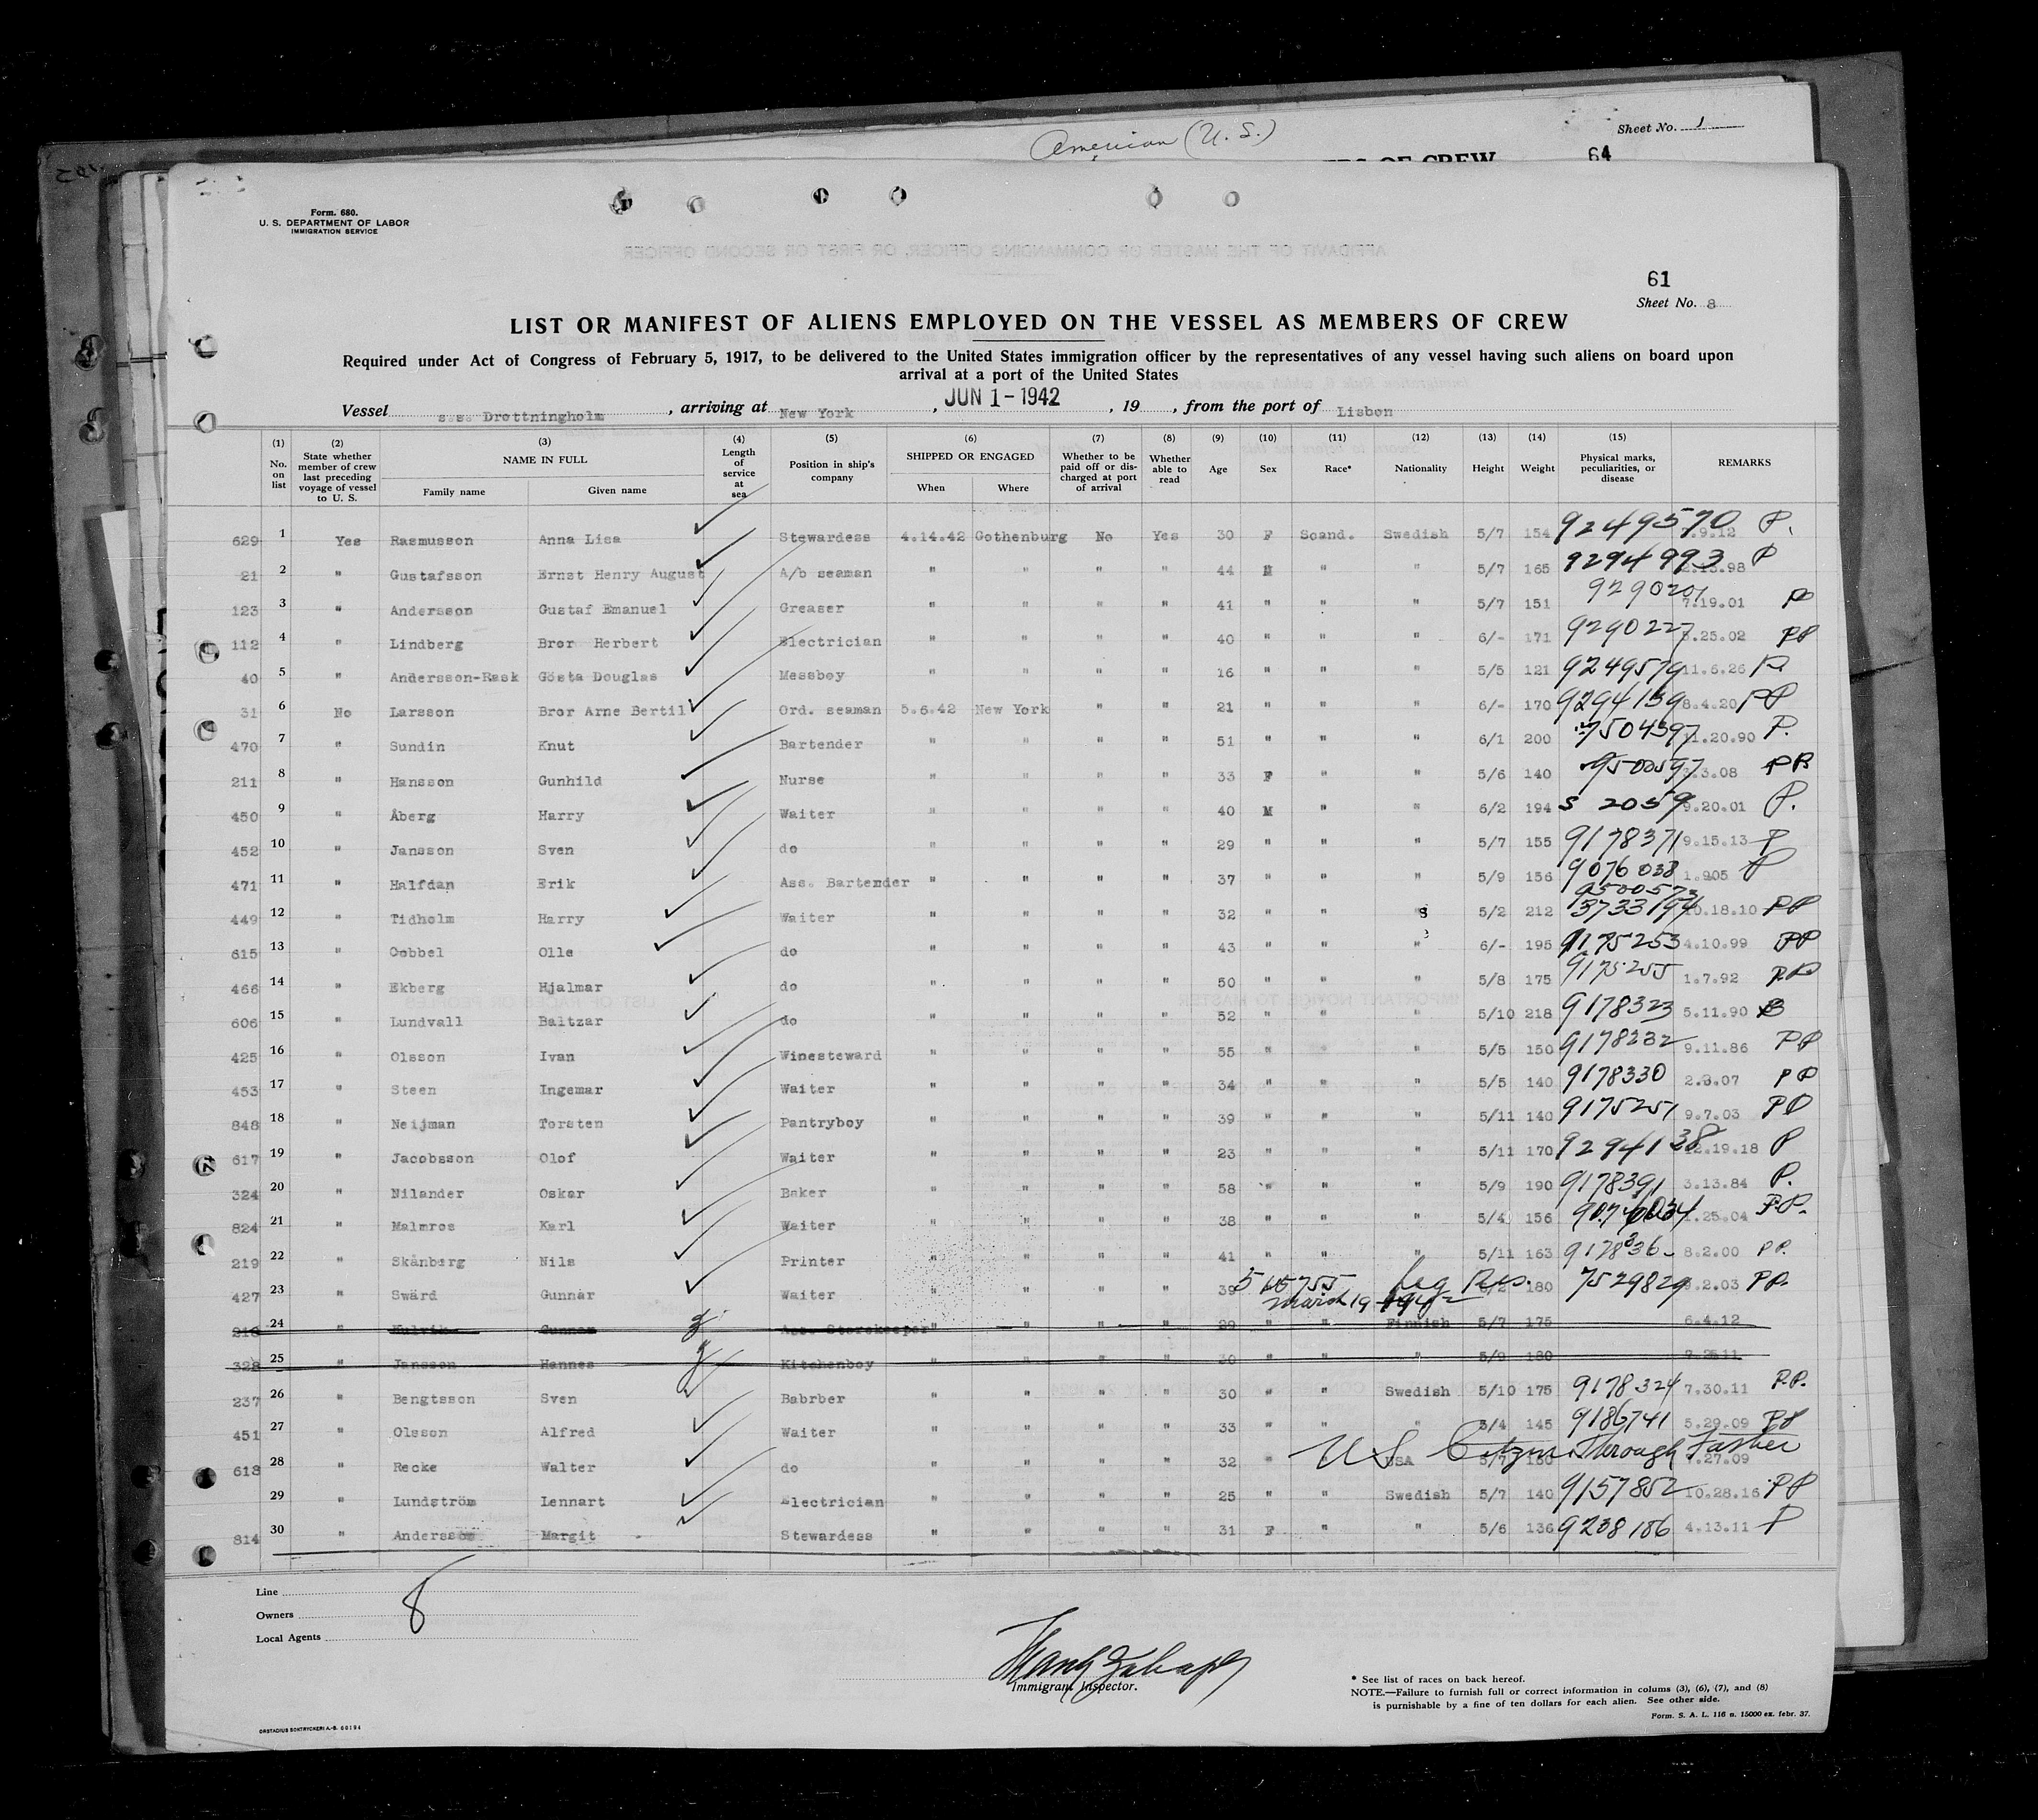 American (U. S.)
Sheet No. 1
64
Form. 680.
U. S. DEPARTMENT OF LABOR
IMMIGRATION SERVICE
61
Sheet No. 8
LIST OR MANIFEST OF ALIENS EMPLOYED ON THE VESSEL AS MEMBERS OF CREW
Required under Act of Congress of February 5, 1917, to be delivered to the United States immigration officer by the representatives of any vessel having such aliens on board upon
arrival at a port of the United States
Vessel s.s. Drottningholm, arriving at New York, JUN 1 - 1942, 19 , from the port of Lisbon
(1) No. on list (2) State whether member of crew last preceding voyage of vessel to U. S. (3) NAME IN FULL Family name Given name (4) Length of service at sea (5) Position in ship's company (6) SHIPPED OR ENGAGED When Where (7) Whether to be paid off or discharged at port of arrival (8) Whether able to read (9) Age (10) Sex (11) Race* (12) Nationality (13) Height (14) Weight (15) Physical marks, peculiarities, or disease REMARKS
629 1 Yes Rasmusson Anna Lisa Stewardess 4.14.42 Gothenburg No Yes 30 F Scand. Swedish 5/7 154 9249570 7.9.12 P.
21 2 " Gustafsson Ernst Henry August A/b seaman " " " " 44 M " " 5/7 165 9294993 .98 P
123 3 " Andersson Gustaf Emanuel Greaser " " " " 41 " " " 5/7 151 9290201 7.19.01 P
112 4 " Lindberg Bror Herbert Electrician " " " " 40 " " " 6/- 171 9290227 .25.02 PP
40 5 " Andersson-Rask Gösta Douglas Messboy " " " " 16 " " " 5/5 121 9249579 11.6.26 P
31 6 No Larsson Bror Arne Bertil Ord. seaman 5.6.42 New York " " 21 " " " 6/- 170 9294139 8.4.20 PP
470 7 " Sundin Knut Bartender " " " " 51 " " " 6/1 200 7504397 11.20.90 P.
211 8 " Hansson Gunhild Nurse " " " " 33 F " " 5/6 140 9500597 .3.08 PP
450 9 " Åberg Harry Waiter " " " " 40 M " " 6/2 194 S 2059 9.20.01 P.
452 10 " Jansson Sven do " " " " 29 " " " 5/7 155 9178371 9.15.13 P
471 11 " Halfdan Erik Ass. Bartender " " " " 37 " " " 5/9 156 9076038 1.905 P
9500573
449 12 " Tidholm Harry Waiter " " " " 32 " " "s 5/2 212 3733194 10.18.10 PP
615 13 " Gobbel Olle do " " " " 43 " " " 6/- 195 9175253 4.10.99 PP
466 14 " Ekberg Hjalmar do " " " " 50 " " " 5/8 175 9175255 1.7.92 PP
606 15 " Lundvall Baltzar do " " " " 52 " " " 5/10 218 9178323 5.11.90
425 16 " Olsson Ivan Winesteward " " " " 55 " " " 5/5 150 9178232 9.11.86 PP
453 17 " Steen Ingemar Waiter " " " " 34 " " " 5/5 140 9178330 2.3.07 PP
848 18 " Neijman Torsten Pantryboy " " " " 39 " " " 5/11 140 9175251 9.7.03 PP
617 19 " Jacobsson Olof Waiter " " " " 23 " " " 5/11 170 9294138 12.19.18 P
324 20 " Nilander Oskar Baker " " " " 58 " " " 5/9 190 9178391 3.13.84 P.
824 21 " Malmros Karl Waiter " " " " 38 " " " 5/4 156 9076034 1.25.04 P.P.
219 22 " Skånberg Nils Printer " " " " 41 " " " 5/11 163 8.2.00 PP.
427 23 " Swärd Gunnar Waiter " " " " 39 Leg Res. 180 7529829 .2.03 PP.
March 19 1942
24 " Kulvik Gunnar Ass. Storekeeper " " " " 29 " " Finnish 5/7 175 6.4.12
328 25 " Jansson Hannes Kitchenboy " " " " 30 " " " 5/9 180
237 26 " Bengtsson Sven Babrber " " " " 30 " " Swedish 5/10 175 9178324 7.30.11 P.P.
451 27 " Olsson Alfred Waiter " " " " 33 " " " 5/4 145 9186741 5.29.09 PP
618 28 " Recke Walter do " " " " 32 " USA 5/7 .27.09 US Citizen Through Father
29 " Lundström Lennart Electrician " " " " 25 " " Swedish 5/7 140 9157852 10.28.16 PP
814 30 " Andersson Margit Stewardess " " " " 31 F " " 5/6 136 9238186 4.13.11 P
Line
Owners
Local Agents
8
Immigrant Inspector.
* See list of races on back hereof.
NOTE.—Failure to furnish full or correct information in colums (3), (6), (7), and (8)
is purnishable by a fine of ten dollars for each alien. See other side.
Form. S. A. L. 116 n. 15000 ex. febr. 37.